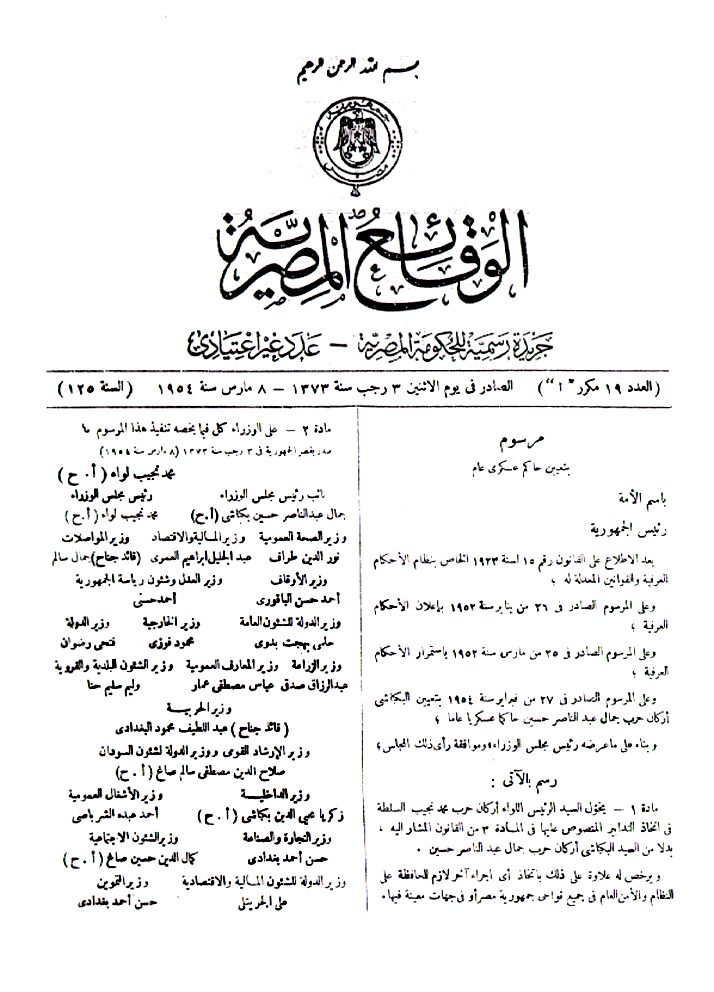 بسم الله الرحمن الرحيم
جمهورية
مصر
الوقائع المصرية
جريدة رسمية للحكومة المصرية – عدد غير اعتيادى
(العدد ١٩ مكرر "١") الصادر فى يوم الاثنين ٣ رجب سنة ١٣٧٣ – ٨ مارس سنة ١٩٥٤ (السنة ١٢٥)
مرسوم
بتعيين حاكم عسكرى عام
باسم الأمة
رئيس الجمهورية
بعد الاطلاع على القانون رقم ١٥ لسنة ١٩٢٣ الخاص بنظام الأحكام
العرفية والقوانين المعدلة له ؛
وعلى المرسوم الصادر فى ٢٦ من يناير سنة ١٩٥٢ بإعلان الأحكام
العرفية ؛
وعلى المرسوم الصادر فى ٢٥ من مارس سنة ١٩٥٢ باستمرار الأحكام
العرفية ؛
وعلى المرسوم الصادر فى ٢٧ من فبراير سنة ١٩٥٤ بتعيين البكباشى
أركان حرب جمال عبد الناصر حسين حاكما عسكريا عاما ؛
وبناء على ما عرضه رئيس مجلس الوزراء، وموافقة رأى ذلك المجلس؛
رسم بالآتى :
مادة ١ – يخول السيد الرئيس اللواء أركان حرب محمد نجيب السلطة
فى اتخاذ التدابير المنصوص عليها فى المادة ٣ من القانون المشار اليه ،
بدلا من السيد البكباشى أركان حرب جمال عبد الناصر حسين .
ويرخص له علاوة على ذلك باتخاذ أى اجراء آخر لازم للمحافظة على
النظام والأمن العام فى جميع نواحى جمهورية مصر أو فى جهات معينة فيها .
مادة ٢ – على الوزراء كل فيما يخصه تنفيذ هذا المرسوم ما
صدر بقصر الجمهورية فى ٣ رجب سنة ١٣٧٣ (٨ مارس سنة ١٩٥٤)
محمد نجيب لواء (أ . ح)
نائب رئيس مجلس الوزراء رئيس مجلس الوزراء
جمال عبد الناصر حسين بكباشى (أ.ح) محمد نجيب لواء (أ.ح)
وزير الصحة العمومية وزير المالية والاقتصاد وزير المواصلات
نور الدين طراف عبد الجليل ابراهيم العمرى (قائد جناح) جمال سالم
وزير الأوقاف وزير العدل وشئون رياسة الجمهورية
أحمد حسن الباقورى أحمد حسنى
وزير الدولة للشئون العامة وزير الخارجية وزير الدولة
حلمى بهجت بدوى محمود فوزى فتحى رضوان
وزير الزراعة وزير المعارف العمومية وزير الشئون البلدية والقروية
عبد الرزاق صدق عباس مصطفى عمار وليم سليم حنا
وزير الحربية
(قائد جناح) عبد اللطيف محمود البغدادى
وزير الإرشاد القومى ووزير الدولة لشئون السودان
صلاح الدين مصطفى سالم صاغ (أ . ح)
وزير الداخلية وزير الأشغال العمومية
زكريا محيى الدين بكباشى (أ . ح) أحمد عبده الشرباصى
وزير التجارة والصناعة وزير الشئون الاجتماعية
حسن أحمد بغدادى كمال الدين حسين صاغ (أ . ح)
وزير الدولة للشئون المالية والاقتصادية وزير التموين
على الجريتلى حسن أحمد بغدادى